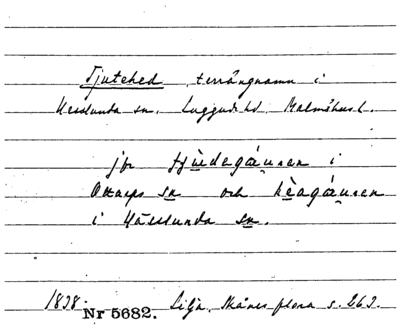 Tjutehed, terrängnamn i
Kvidinge sn. Luggude hd, Malmöhus l.
jfr tjudagáuren i
Ottarps sn och hèagáuren
i Hässlunda sn.
1838. Nr 5682. Lilja, Skånes flora s. 263.